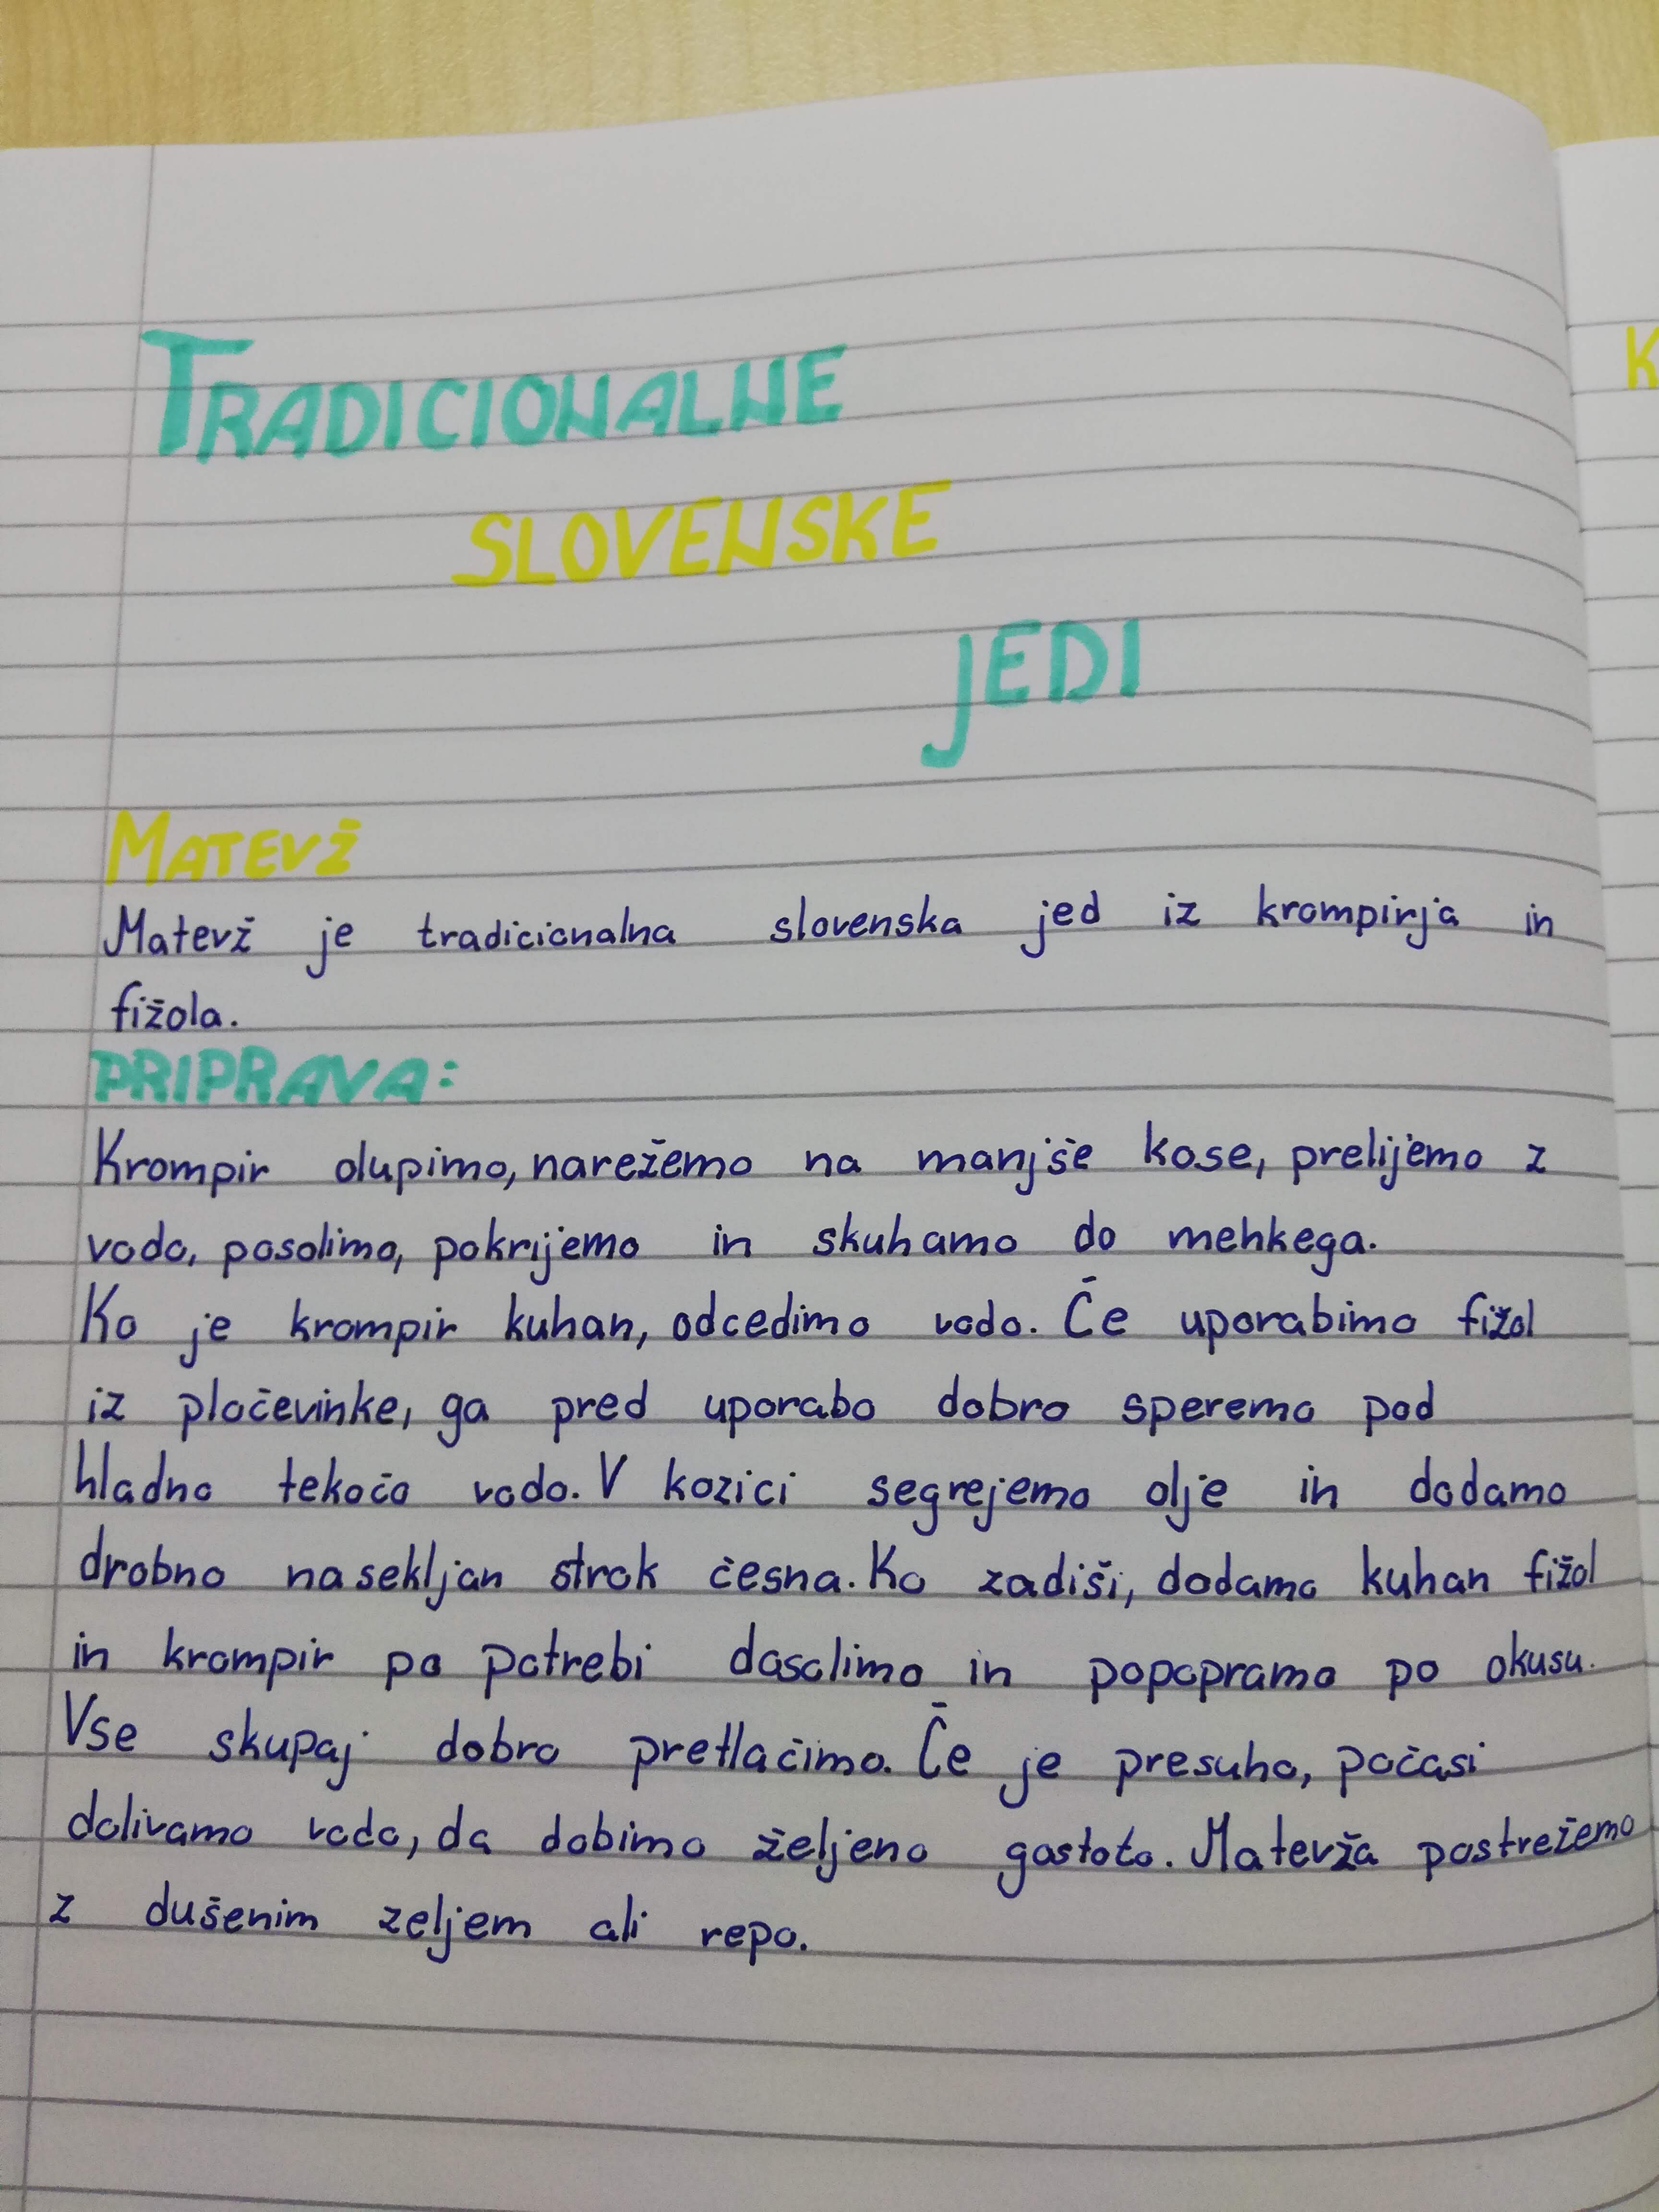 TRADICIONALNE
SLOVENSKE
JEDI
MATEVŽ
Matevž je tradicionalna slovenska jed iz krompirja in
fižola.
PRIPRAVA:
Krompir olupimo, narežemo na manjše kose, prelijemo z
vodo, posolimo, pokrijemo in skuhamo do mehkega.
Ko je krompir kuhan, odcedimo vodo. Če uporabimo fižol
iz pločevinke, ga pred uporabo dobro speremo pod
hladno tekočo vodo. V kozici segrejemo olje in dodamo
drobno nasekljan strok česna. Ko zadiši, dodamo kuhan fižol
in krompir po potrebi dosolimo in popopramo po okusu.
Vse skupaj dobro pretlačimo. Če je presuho, počasi
dolivamo vodo, da dobimo željeno gostoto. Matevža postrežemo
z dušenim zeljem ali repo.
K